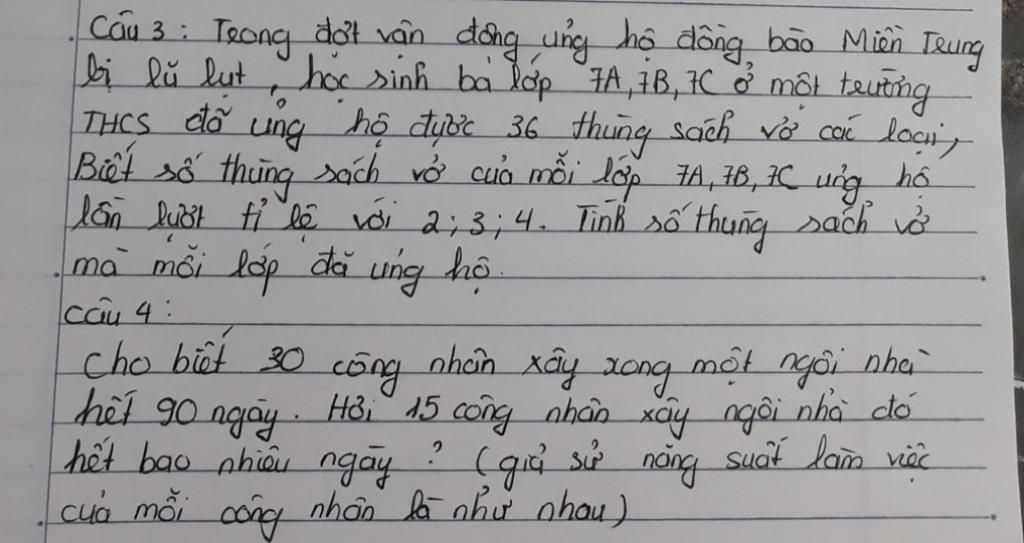 Câu 3 : Trong đợt vận động ủng hộ đồng bào Miền Trung
bị lũ lụt, học sinh ba lớp 7A, 7B, 7C ở một trường
THCS đã ủng hộ được 36 thùng sách vở các loại,
Biết số thùng sách vở của mỗi lớp 7A, 7B, 7C ủng hộ
lần lượt tỉ lệ với 2; 3; 4. Tính số thùng sách vở
mà mỗi lớp đã ủng hộ.
Câu 4 :
Cho biết 30 công nhân xây xong một ngôi nhà
hết 90 ngày. Hỏi 15 công nhân xây ngôi nhà đó
hết bao nhiêu ngày ? (giả sử năng suất làm việc
của mỗi công nhân là như nhau)